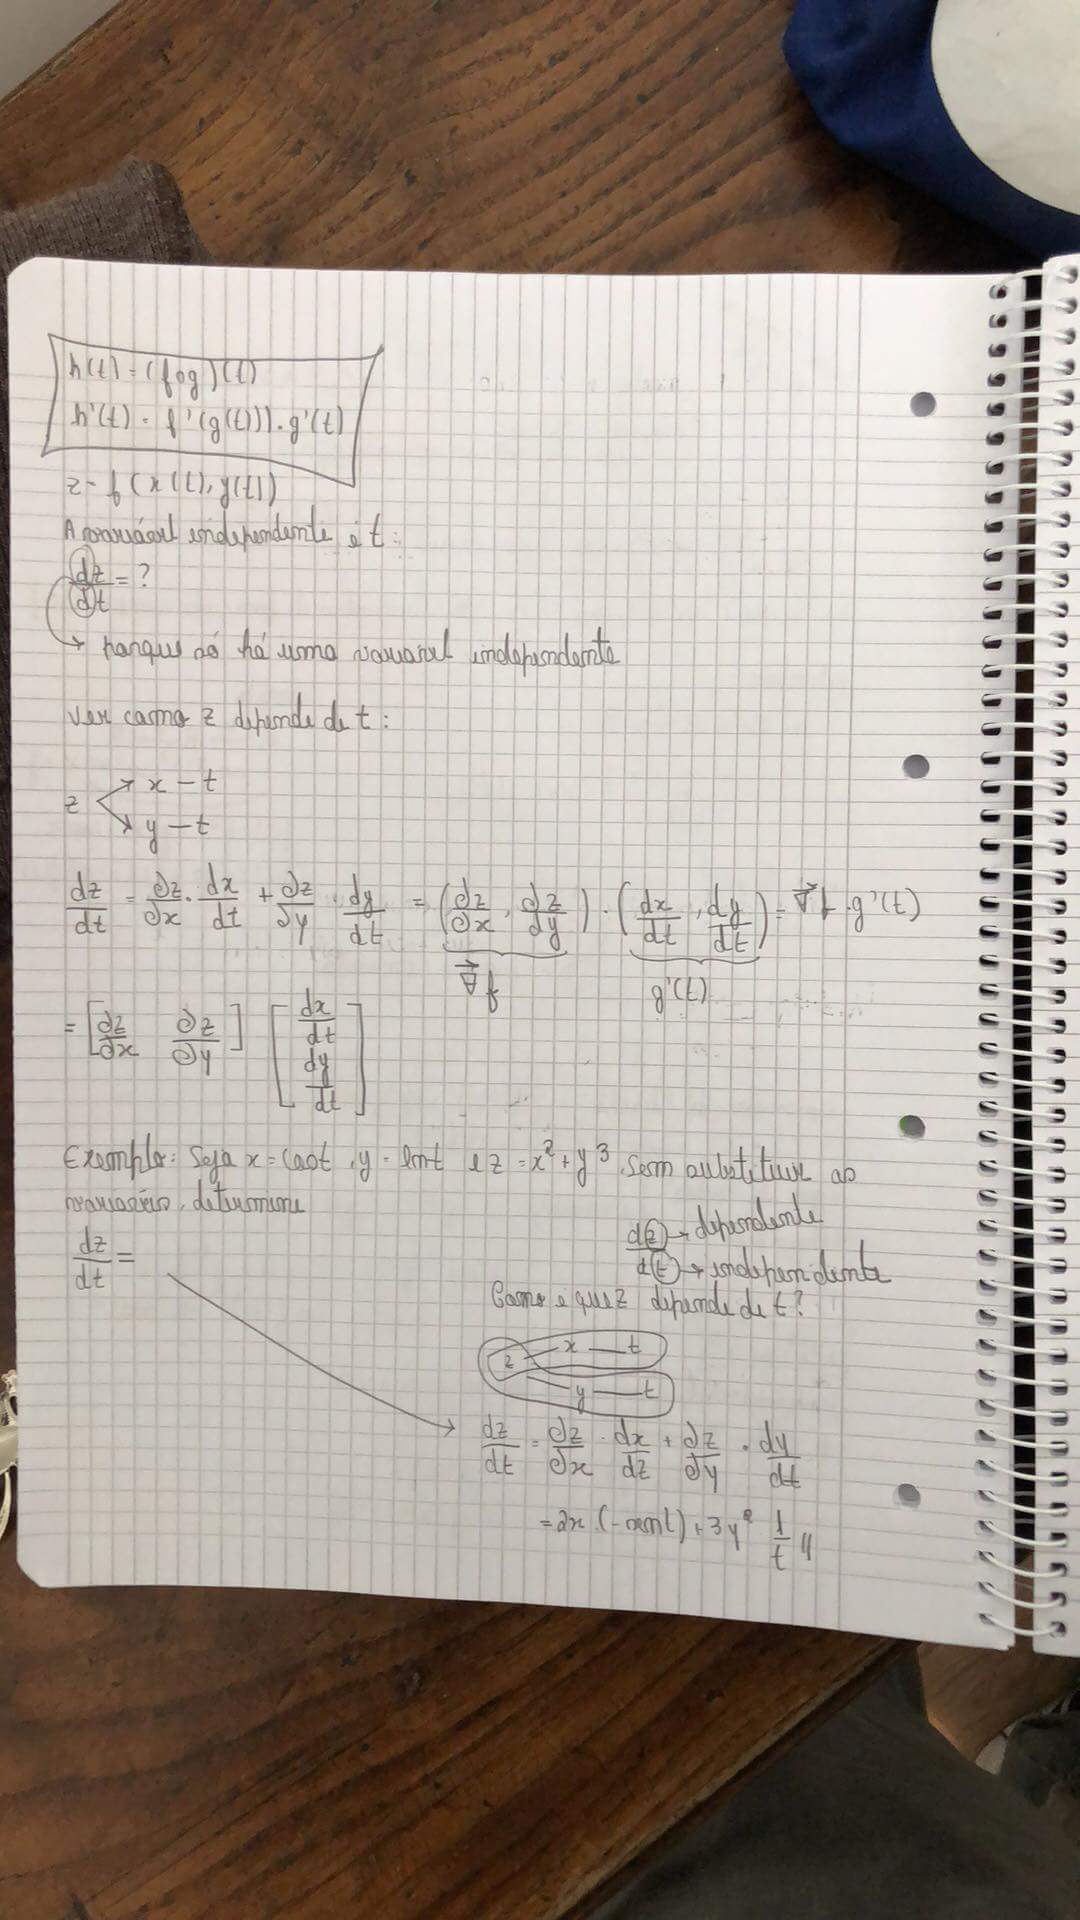 h(t) = (fog)(t)
h'(t) = f'(g(t)))·g'(t)
z = f(x(t), y(t))
A variável independente é t:
dz/dt = ?
→ porque só há uma variavel independente
Ver como z depende de t:
x — t
z
y — t
dz/dt = ∂z/∂x · dx/dt + ∂z/∂y · dy/dt = (∂z/∂x, ∂z/∂y) · (dx/dt, dy/dt) = ∇⃗f · g'(t)
∇⃗f g'(t)
= [∂z/∂x ∂z/∂y] [dx/dt dy/dt]
Exemplo: Seja x = cost, y = lnt e z = x² + y³, sem substituir as
variáveis, determine
dz/dt =
d(z) → dependente
d(t) → independente
Como é que z depende de t?
z x — t
y — t
dz/dt = ∂z/∂x · dx/dz + ∂z/∂y · dy/dt
= 2x·(-sent) + 3y² 1/t //